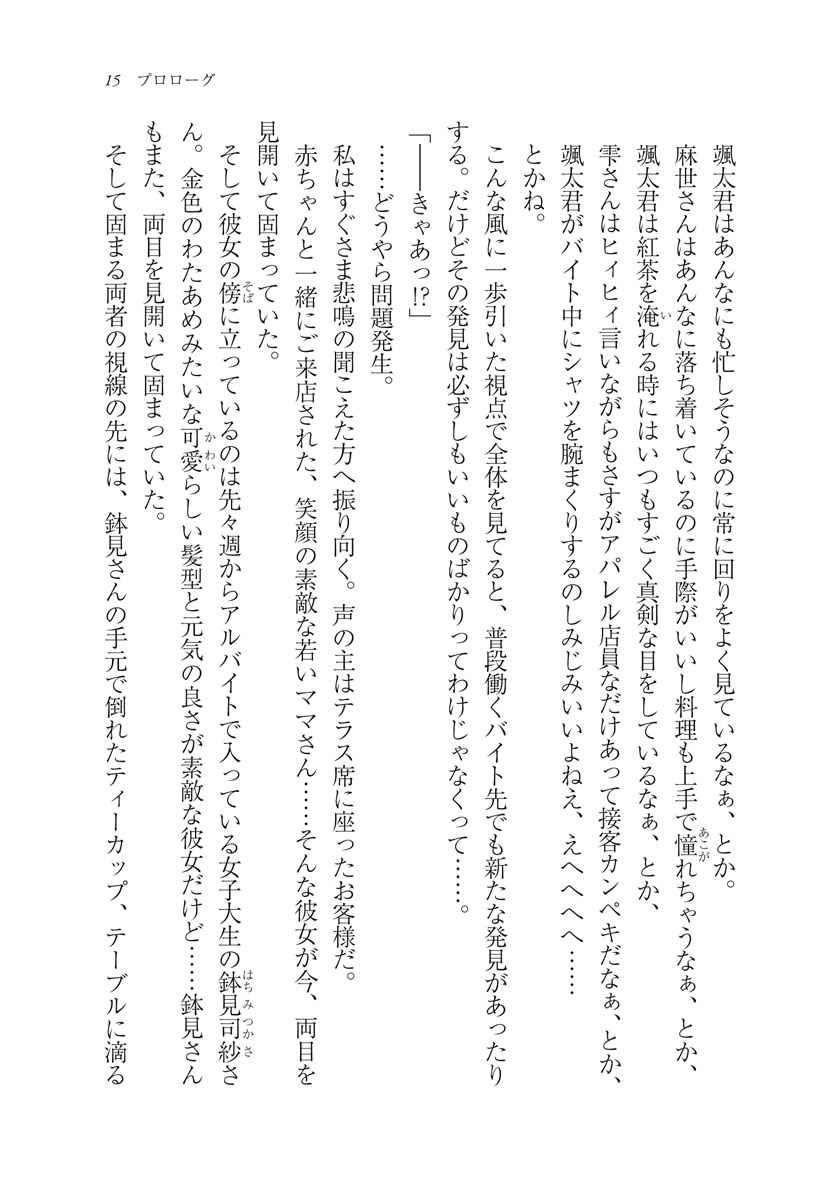 15 プロローグ
颯太君はあんなにも忙しそうなのに常に回りをよく見ているなぁ、とか。
麻世さんはあんなに落ち着いているのに手際がいいし料理も上手で憧れちゃうなぁ、とか、
颯太君は紅茶を淹れる時にはいつもすごく真剣な目をしているなぁ、とか、
雫さんはヒィヒィ言いながらもさすがアパレル店員なだけあって接客カンペキだなぁ、とか、
颯太君がバイト中にシャツを腕まくりするのしみじみいいよねえ、えへへへへ……
とかね。
こんな風に一歩引いた視点で全体を見てると、普段働くバイト先でも新たな発見があったり
する。だけどその発見は必ずしもいいものばかりってわけじゃなくって……。
「――きゃあっ!?」
……どうやら問題発生。
私はすぐさま悲鳴の聞こえた方へ振り向く。声の主はテラス席に座ったお客様だ。
赤ちゃんと一緒にご来店された、笑顔の素敵な若いママさん……そんな彼女が今、両目を
見開いて固まっていた。
そして彼女の傍に立っているのは先々週からアルバイトで入っている女子大生の鉢見司紗さ
ん。金色のわたあめみたいな可愛らしい髪型と元気の良さが素敵な彼女だけど……鉢見さん
もまた、両目を見開いて固まっていた。
そして固まる両者の視線の先には、鉢見さんの手元で倒れたティーカップ、テーブルに滴る